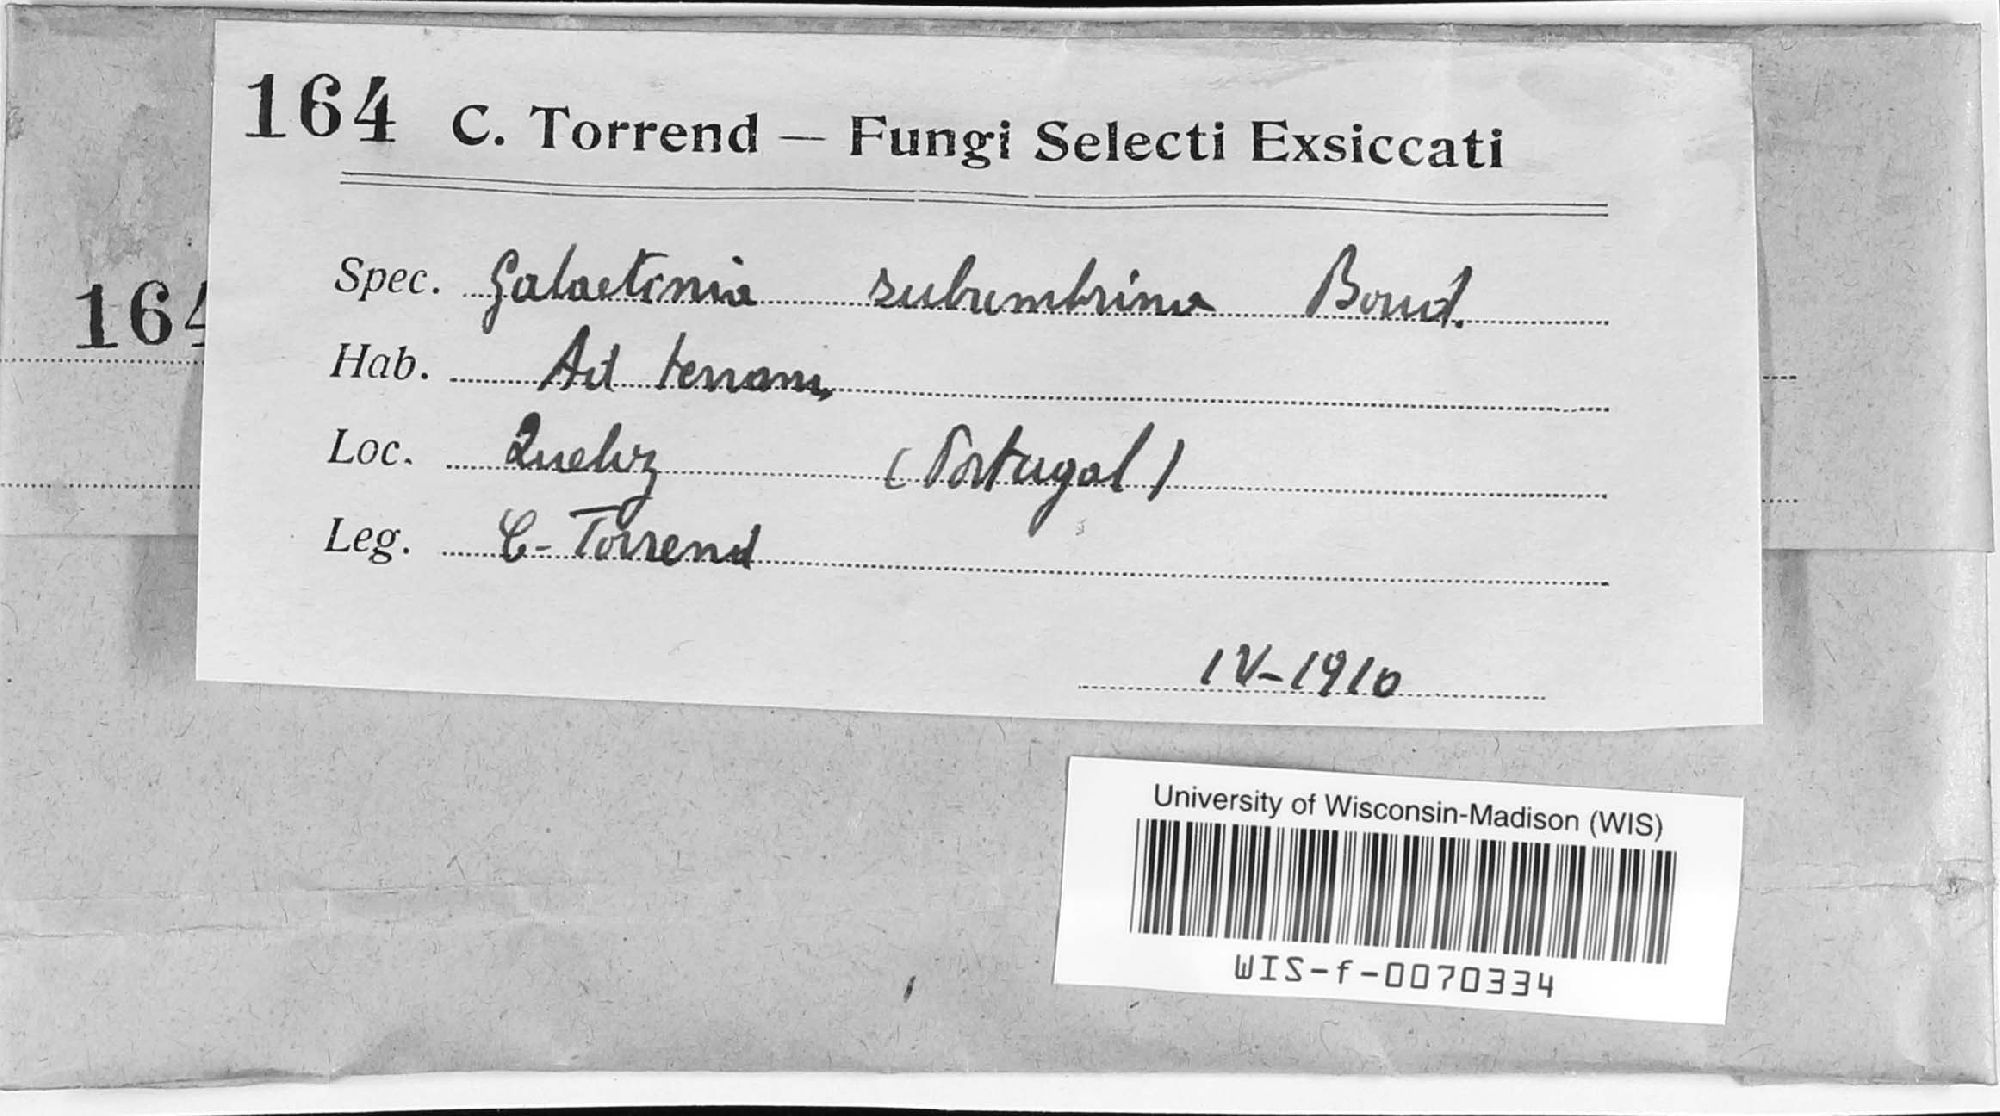 164 C. Torrend — Fungi Selecti Exsiccati
164
Spec. Galactinia subumbrina Boud.
Hab. Ad terram,
Loc. Queluz (Portugal)
Leg. C. Torrend
IV-1910
University of Wisconsin-Madison (WIS)
WIS-f-0070334